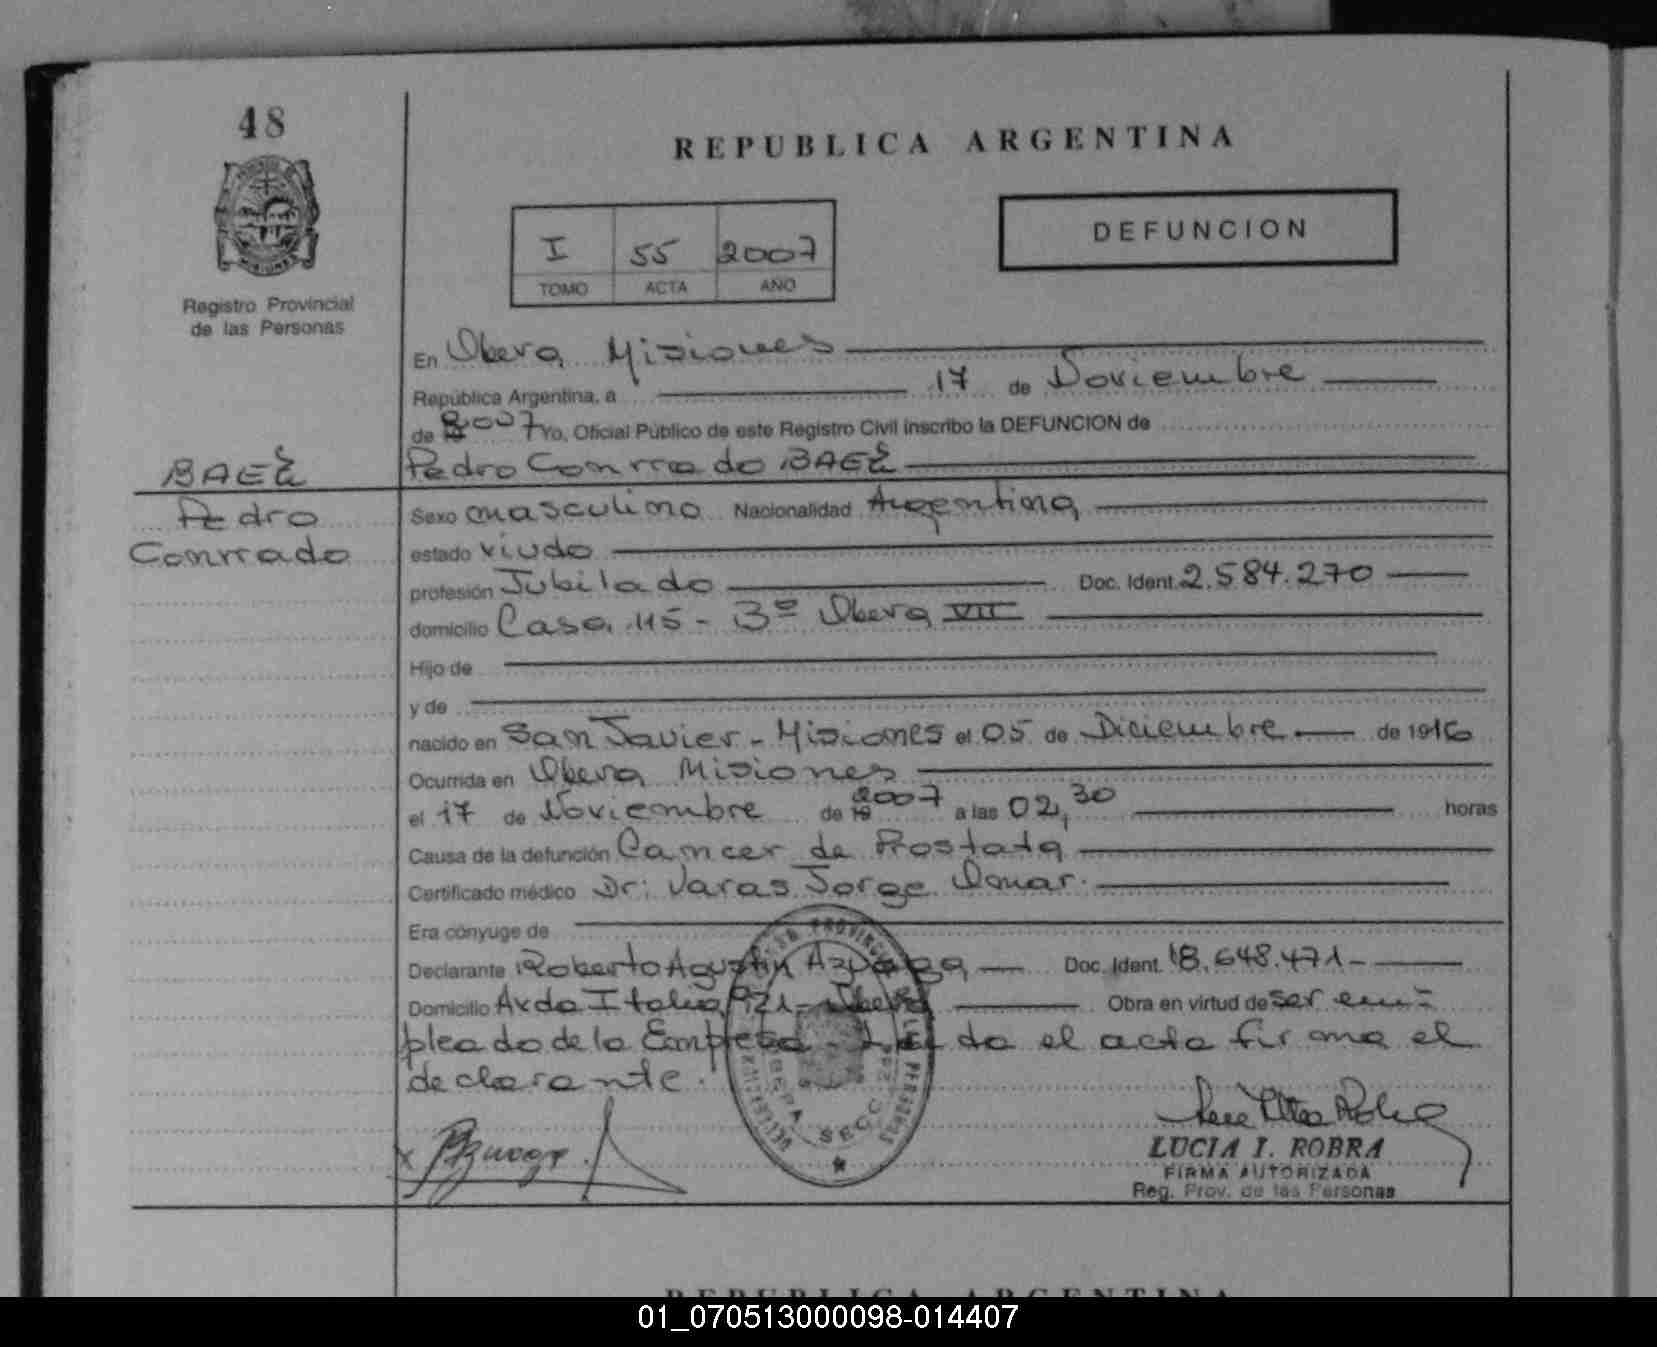 48
REPUBLICA ARGENTINA
DEFUNCION
I 55 2007
TOMO ACTA AÑO
MISIONES
Registro Provincial
de las Personas
En Obera Misiones
República Argentina, a 17 de Noviembre
de 2007 Yo, Oficial Público de este Registro Civil inscribo la DEFUNCION de
BAEZ
Pedro Conrrado BAEZ
Pedro
Conrrado
Sexo masculino Nacionalidad Argentina
estado viudo
profesión Jubilado Doc. Ident. 2.584.270
domicilio Casa 115 - Bº Obera VII
Hijo de
y de
nacido en San Javier - Misiones el 05 de Diciembre de 1916
Ocurrida en Obera Misiones
el 17 de Noviembre de 19 2007 a las 02,30 horas
Causa de la defunción Cancer de Prostata
Certificado médico Dr: Varas Jorge Omar.
Era cónyuge de
Declarante Roberto Agustin Azuaga Doc. Ident. 18.648.471-
Domicilio Avda Italia 921 - Obera Obra en virtud de ser em=
pleado de la Empresa - Leida el acta firma el
declarante.
OBERA SECC.
x Azuaga
LUCIA I. ROBRA
FIRMA AUTORIZADA
Reg. Prov. de las Personas
REPUBLICA ARGENTINA
01_070513000098-014407